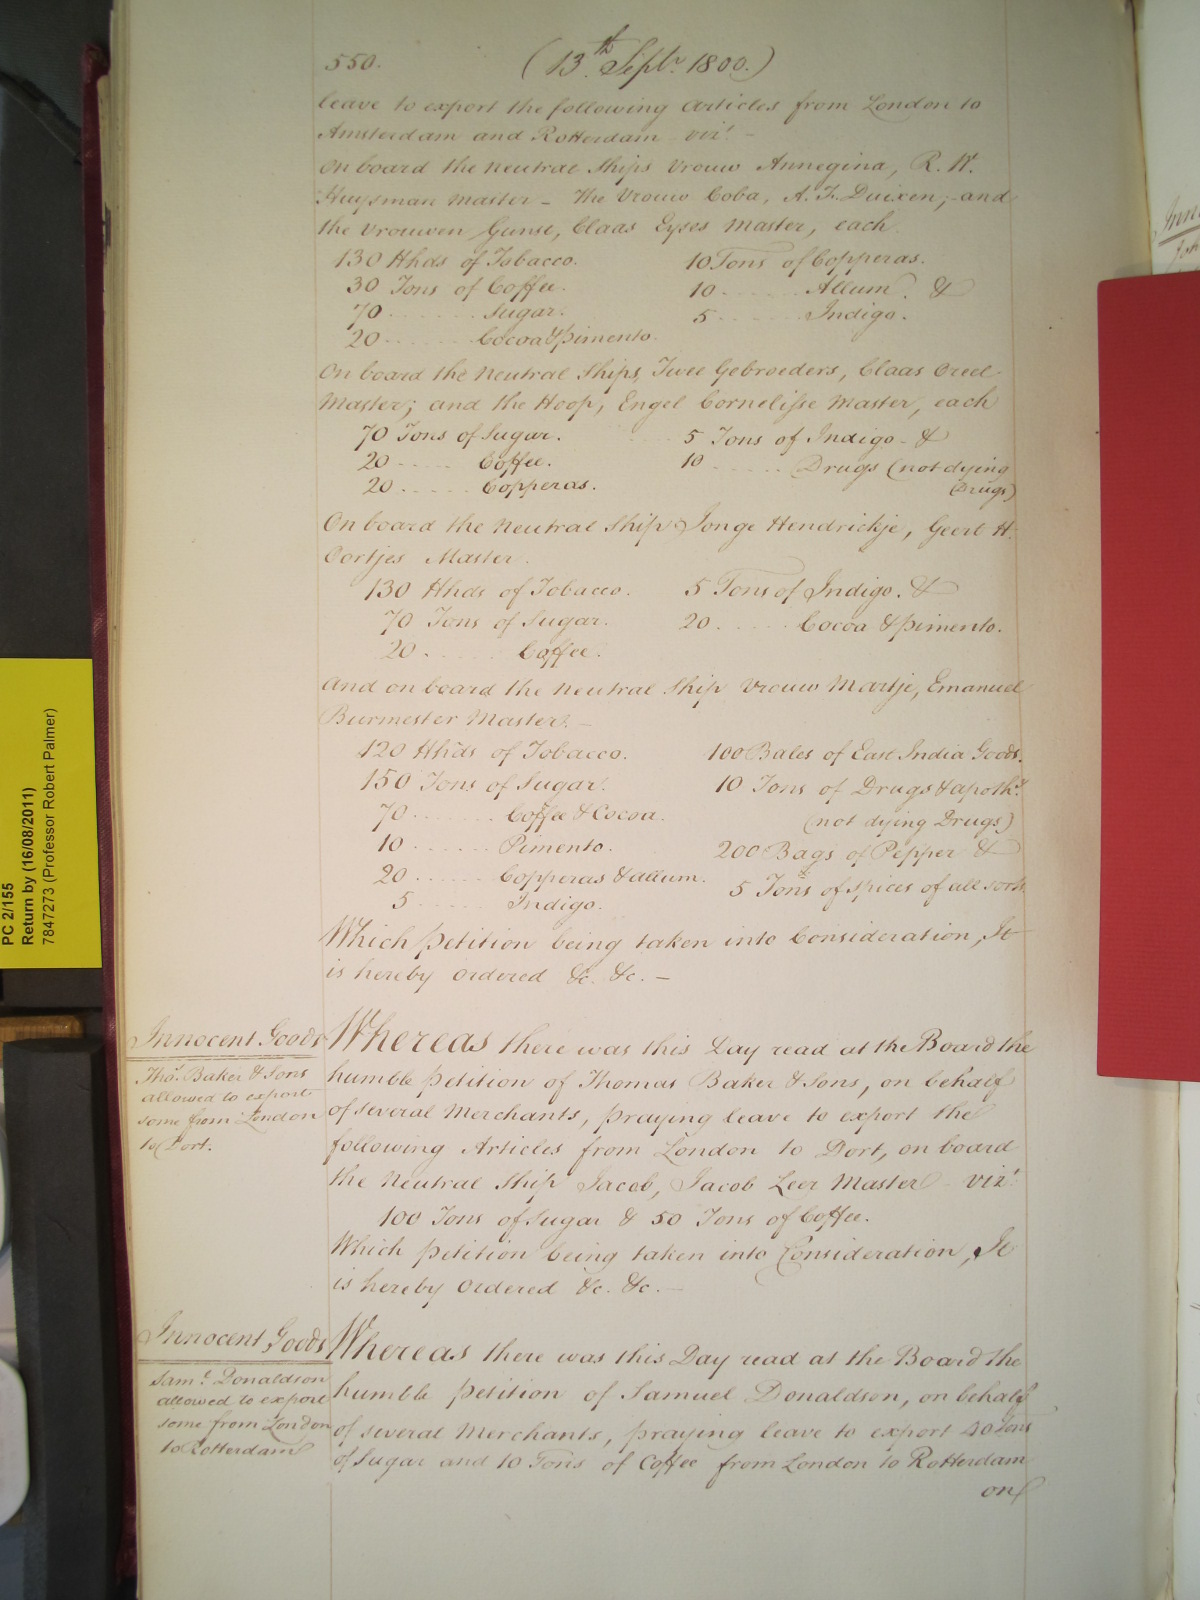 550. (13th Septr. 1800.)
leave to export the following Articles from London to
Amsterdam and Rotterdam vizt. -
On board the Neutral Ships Vrouw Annegina, R. H.
Huysman Master - The Vrouw Coba, A. F. Duixen; and
the Vrouwen Gunst, Claas Eyses Master, each
130 Hhds of Tobacco. 10 Tons of Copperas.
30 Tons of Coffee. 10 ...... Allum. &
70 ...... Sugar. 5 ...... Indigo.
20 ...... Cocoa & pimento.
On board the Neutral Ships, Twee Gebroeders, Claas Creel
Master; and the Hoop, Engel Cornelisse Master, each
70 Tons of Sugar. 5 Tons of Indigo - &
20 ..... Coffee. 10 ...... Drugs (not dying
20 ..... Copperas. Drugs)
On board the Neutral Ship Jonge Hendrickje, Geert H.
Oortjes Master.
130 Hhds of Tobacco. 5 Tons of Indigo. &
70 Tons of Sugar. 20 ...... Cocoa & pimento.
20 ...... Coffee.
And on board the Neutral Ship Vrouw Martje, Emanuel
Burmester Master. -
120 Hhds of Tobacco. 100 Bales of East India Goods.
150 Tons of Sugar. 10 Tons of Drugs & apothy.
70 ...... Coffee & Cocoa. (not dying Drugs)
10 ...... Pimento. 200 Bags of Pepper &
20 ...... Copperas & allum. 5 Tons of spices of all sorts
5 ...... Indigo.
Which petition being taken into Consideration, It
is hereby ordered &c. &c. -
Innocent Goods
Thos. Baker & Sons
allowed to export
some from London
to Dort.
Whereas there was this Day read at the Board the
humble petition of Thomas Baker & Sons, on behalf
of several Merchants, praying leave to export the
following Articles from London to Dort, on board
the Neutral Ship Jacob, Jacob Leer Master vizt.
100 Tons of Sugar & 50 Tons of Coffee.
Which petition being taken into Consideration, It
is hereby ordered &c. &c. -
Innocent Goods
Saml. Donaldson
allowed to export
some from London
to Rotterdam
Whereas there was this Day read at the Board the
humble petition of Samuel Donaldson, on behalf
of several Merchants, praying leave to export 40 Tons
of Sugar and 10 Tons of Coffee from London to Rotterdam
on
PC 2/155
Return by (16/08/2011)
7847273 (Professor Robert Palmer)